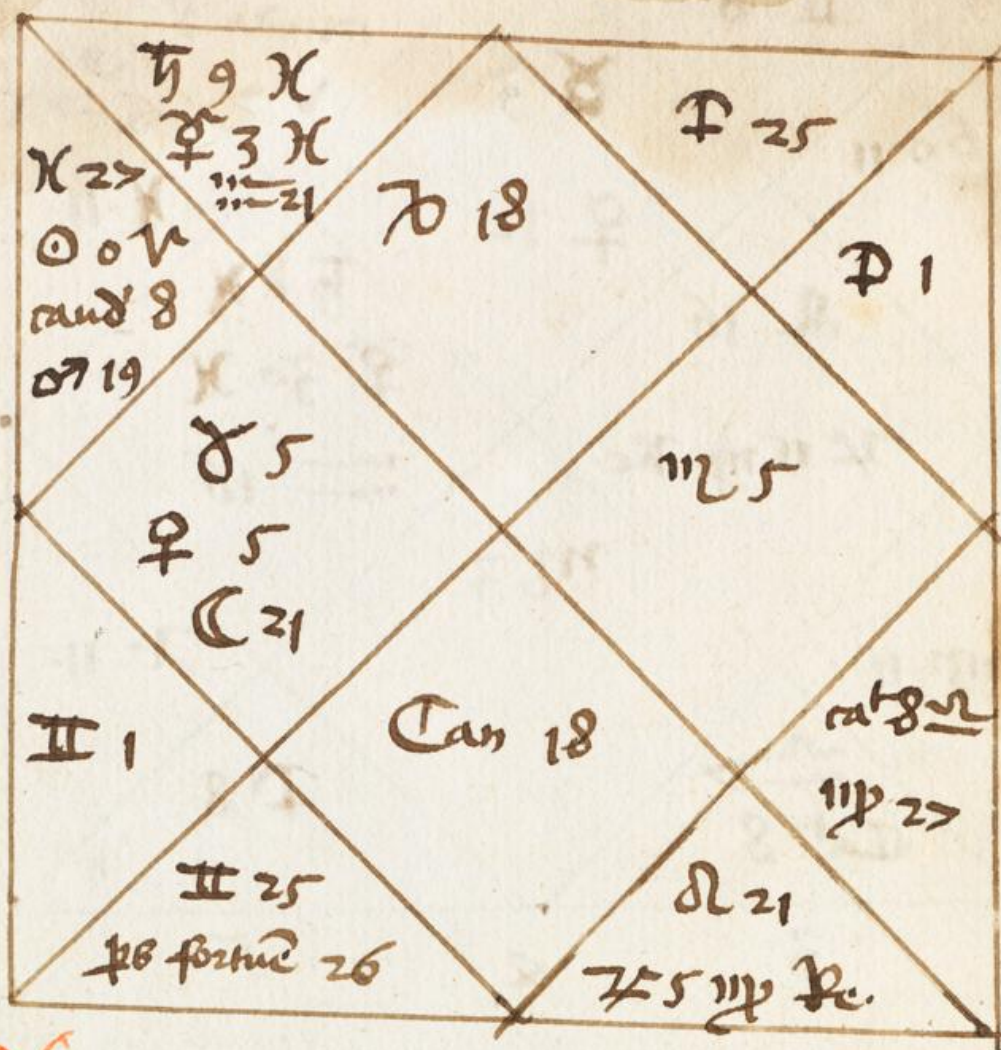 ♄ 9 ♓
☿ 3 ♓
♒ 21
♓ 27
☉ 0 ♈
caud 8
♂ 19
♑ 18
♐ 25
♐ 1
♉ 5
♀ 5
☾ 21
♏ 5
♊ 1
Can 18
cat 8 ♎
♍ 27
♊ 25
ps fortuē 26
♌ 21
♃ 5 ♍ Re.